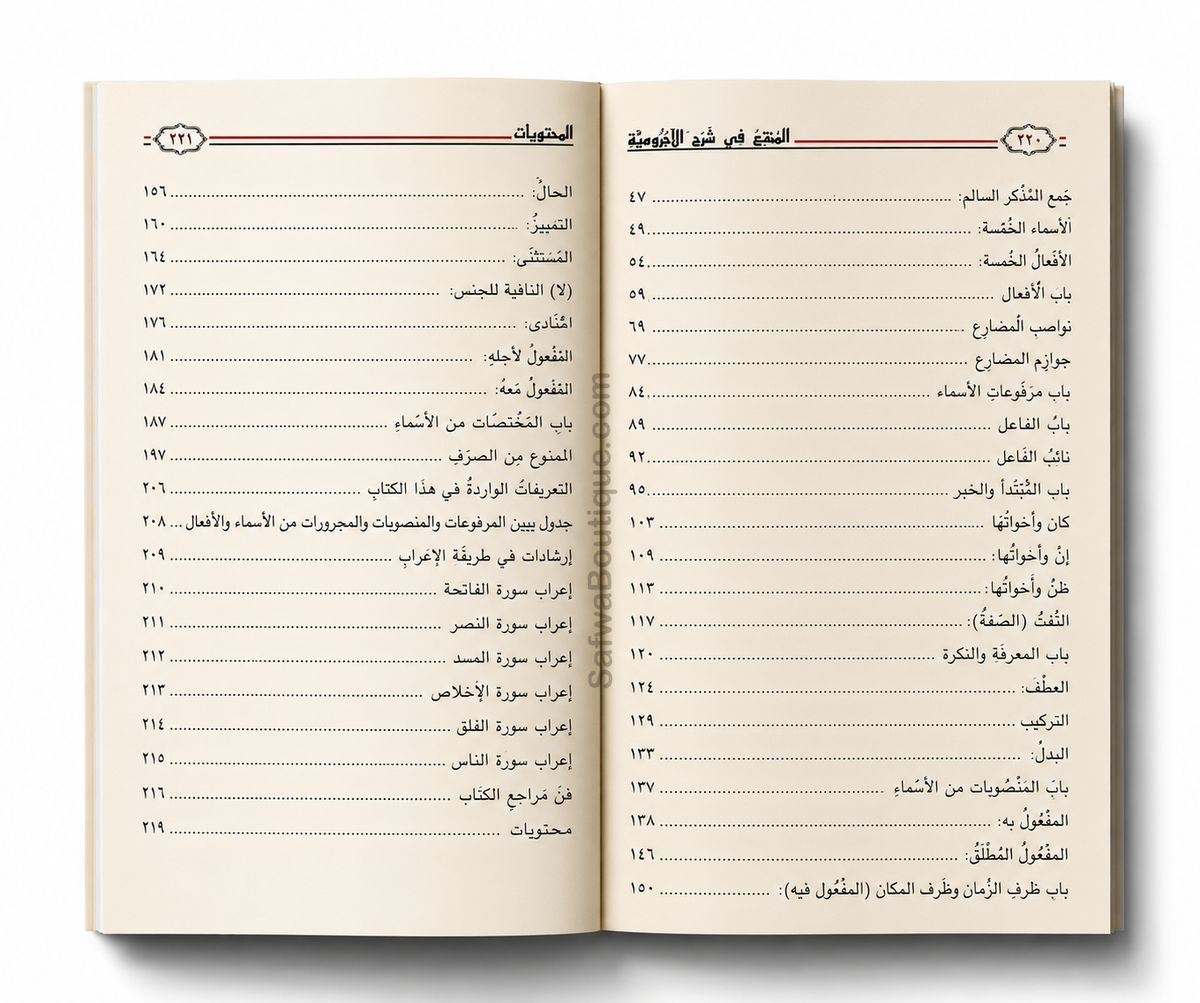 ٢٢٠ المُنقِعُ فِي شَرَح الآجُرُوميَّةِ
جَمع المْذُكر السالم: ٤٧
الأسماء الخُمّسة: ٤٩
الأفَعالُ الخُمسة: ٥٤
باب الْأفعال ٥٩
نواصبِ الُمضارِع ٦٩
جوازِم المضارِع ٧٧
باب مرَفَوعاتِ الأسماء ٨٤
بابُ الفاعل ٨٩
نائبُ الفَاعل ٩٢
باب المُّبْتُدأ والخبر ٩٥
كان وأخواتُهَا ١٠٣
إنُ وأخواتُها: ١٠٩
ظنُ وأَخواتُها: ١١٣
التُفتُ (الصّفةُ): ١١٧
باب المعرفَةِ والنكرة ١٢٠
العطْف: ١٢٤
التركيب ١٢٩
البدلُ: ١٣٣
بابَ المَنْصُوبات من الأسّماءِ ١٣٧
المفْعُولُ به: ١٣٨
المفْعُولُ المُطْلَقُ: ١٤٦
باب ظرفِ الزُمان وظَرف المكان (المفْعُول فيه): ١٥٠
المحتويات ٢٢١
الحالُ: ١٥٦
التمَييزُ: ١٦٠
المَسَتثنَى: ١٦٤
(لا) النافية للجنس: ١٧٢
امُّنَادى: ١٧٦
المْفُعولُ لأجلهِ: ١٨١
المْفْعولُ مَعهُ: ١٨٤
بابِ المَخُتصّات من الأسّماءِ ١٨٧
الممنوع مِن الصرَفِ ١٩٧
التعريفاتُ الواردةُ في هذَا الكتابِ ٢٠٦
جدول يبين المرفوعات والمنصوبات والمجرورات من الأسماء والأفعال ... ٢٠٨
إرشادات في طريقَة الإعَرابِ ٢٠٩
إعراب سورة الفاتحة ٢١٠
إعراب سورة النصر ٢١١
إعراب سورة المسد ٢١٢
إعراب سورة الأخلاص ٢١٣
إعراب سورة الفلق ٢١٤
إعراب سورة الناس ٢١٥
فنَ مَراجعِ الكتَاب ٢١٦
محتويات ٢١٩
SafwaBoutique.com